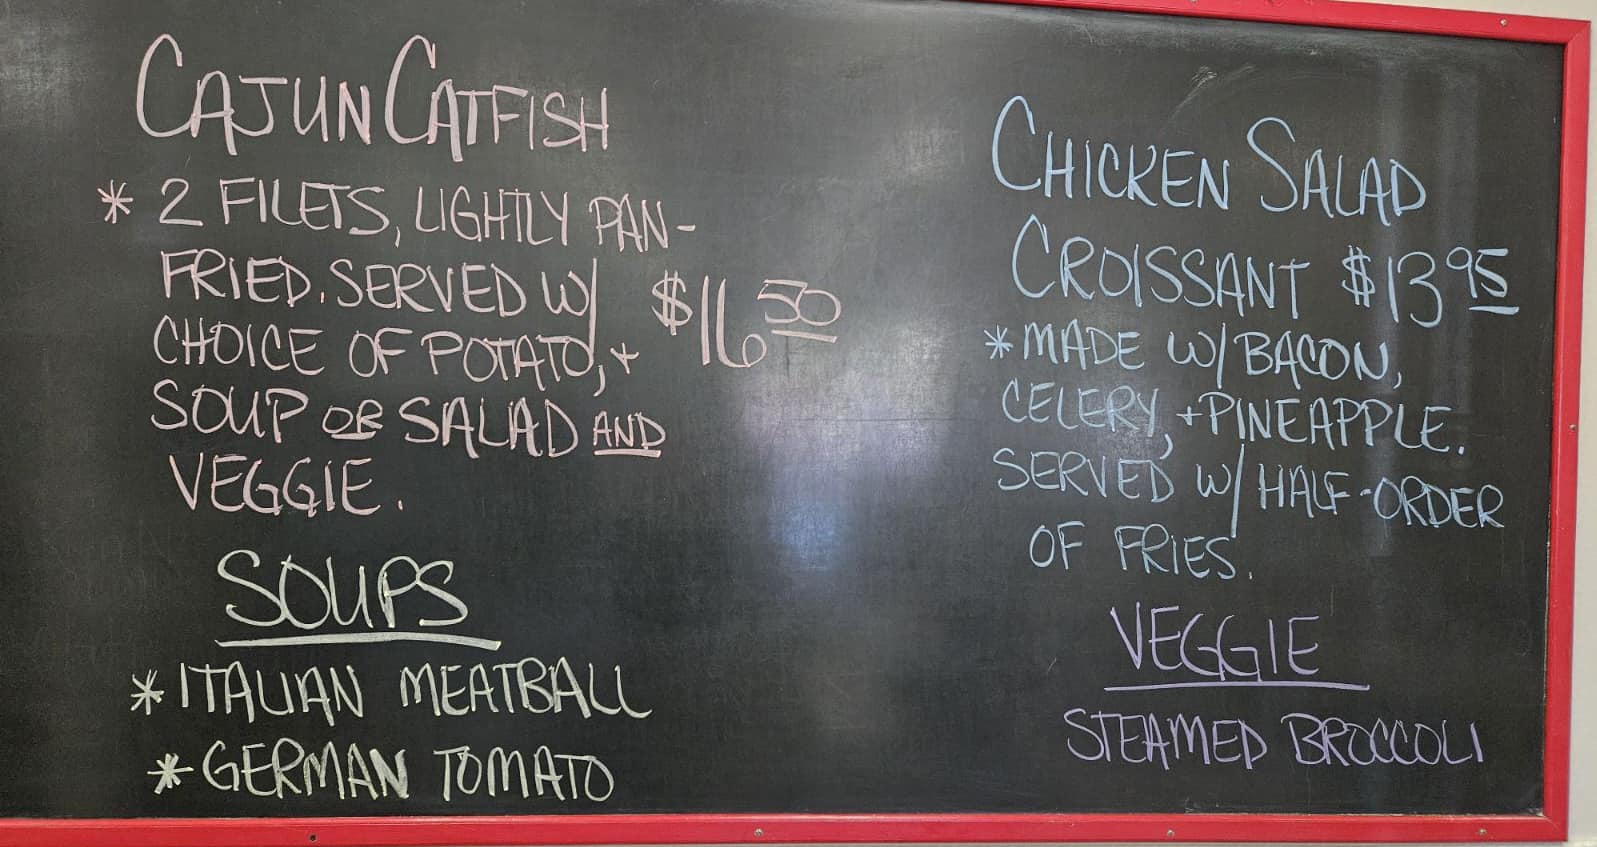 CAJUN CATFISH
* 2 FILETS, LIGHTLY PAN-
FRIED. SERVED W/
CHOICE OF POTATO, +
SOUP OR SALAD AND
VEGGIE.
$16 50
SOUPS
* ITALIAN MEATBALL
* GERMAN TOMATO
CHICKEN SALAD
CROISSANT $13 95
* MADE W/ BACON,
CELERY, + PINEAPPLE.
SERVED W/ HALF-ORDER
OF FRIES.
VEGGIE
STEAMED BROCCOLI